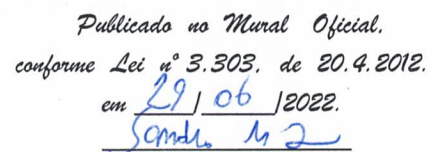 Publicado no Mural Oficial,
conforme Lei nº 3.303, de 20.4.2012.
em 29/06/2022.